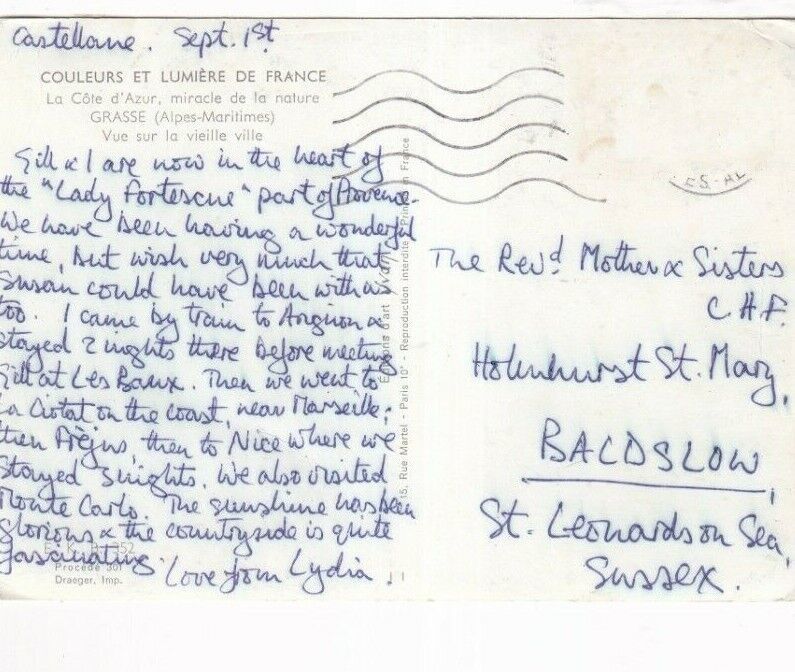 Castellane. Sept. 1st
COULEURS ET LUMIÈRE DE FRANCE
La Côte d'Azur, miracle de la nature
GRASSE (Alpes-Maritimes)
Vue sur la vieille ville
Gill & I are now in the heart of
the "Lady Fortescue" part of Provence.
We have been having a wonderful
time, but wish very much that
Susan could have been with us
too. I came by train to Avignon &
stayed 2 nights there before meeting
Gill at Les Baux. Then we went to
La Ciotat on the coast, near Marseille;
then Fréjus, then to Nice where we
stayed 3 nights. We also visited
Monte Carlo. The sunshine has been
glorious & the countryside is quite
fascinating.
Love from Lydia.
Procédé 301
Draeger, Imp.
Editions d'art Yvon
15, Rue Martel - Paris 10e - Reproduction interdite
Printed in France
ES-AL
The Revd Mother & Sisters
C.H.F.
Holmhurst St. Mary,
BALDSLOW,
St. Leonards on Sea,
Sussex.